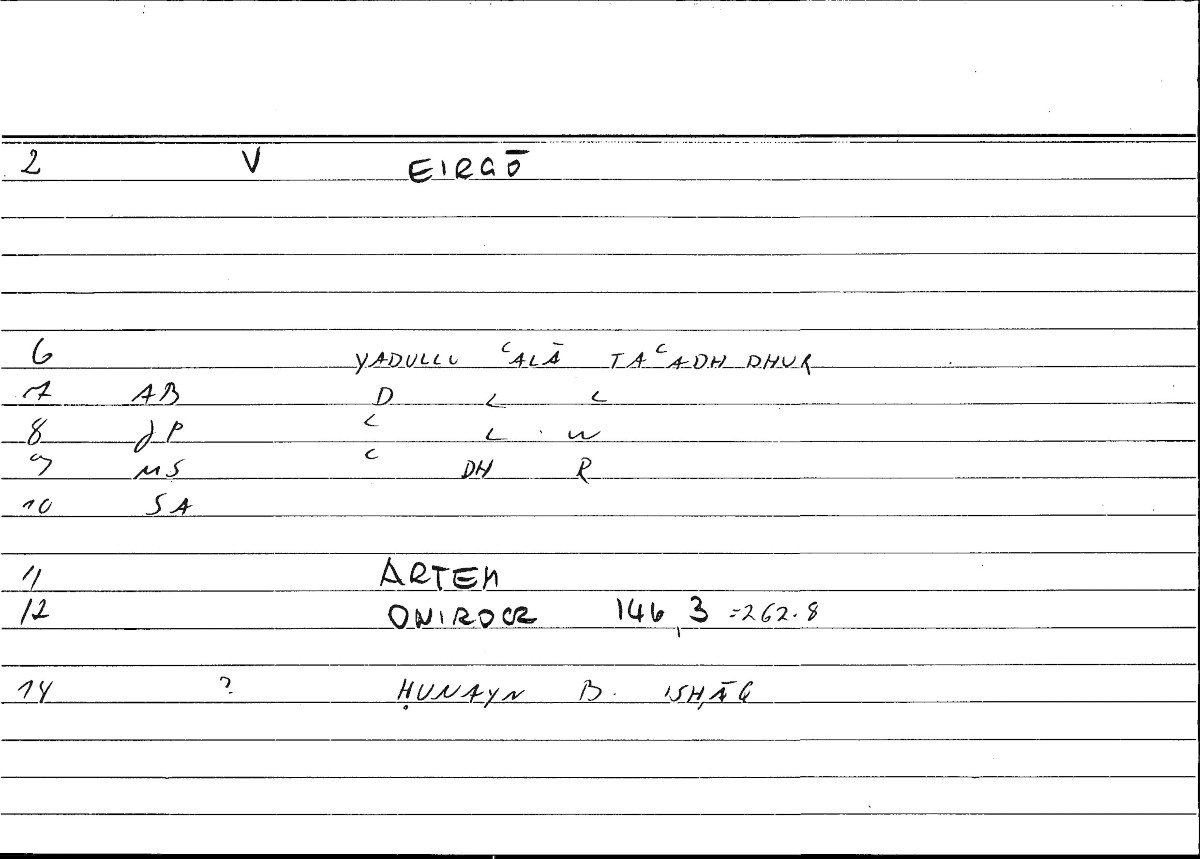 2 V EIRGŌ
6 YADULLU ʿALĀ TAʿADHDHUR
7 AB D L L
8 JP ʿ L W
9 MS ʿ DH R
10 SA
11 ARTEM
12 ONIROCR 146,3 =262.8
14 ? ḤUNAYN B. ISḤĀQ